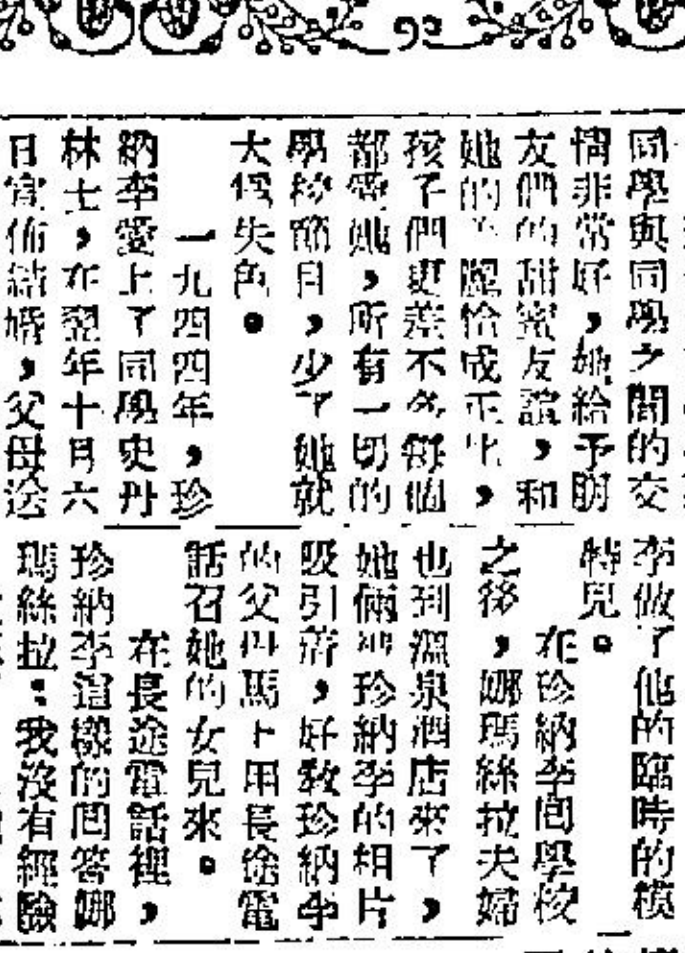 同學與同學之間的交
情非常好，她給予朋
友們的甜蜜友誼，和
她的美麗恰成正比，
孩子們更差不多每個
都愛她，所有一切的
學校節目，少了她就
大爲失色。
一九四四年，珍
納李愛上了同學史丹
林士，在翌年十月六
日宣佈結婚，父母送
李做了他的臨時的模
特兒。
在珍納李回學校
之後，娜瑪絲拉夫婦
也到溫泉酒店來了，
她倆把珍納李的相片
吸引着，好教珍納李
的父母馬上用長途電
話召她的女兒來。
在長途電話裡，
珍納李這樣的回答娜
瑪絲拉：我沒有經驗